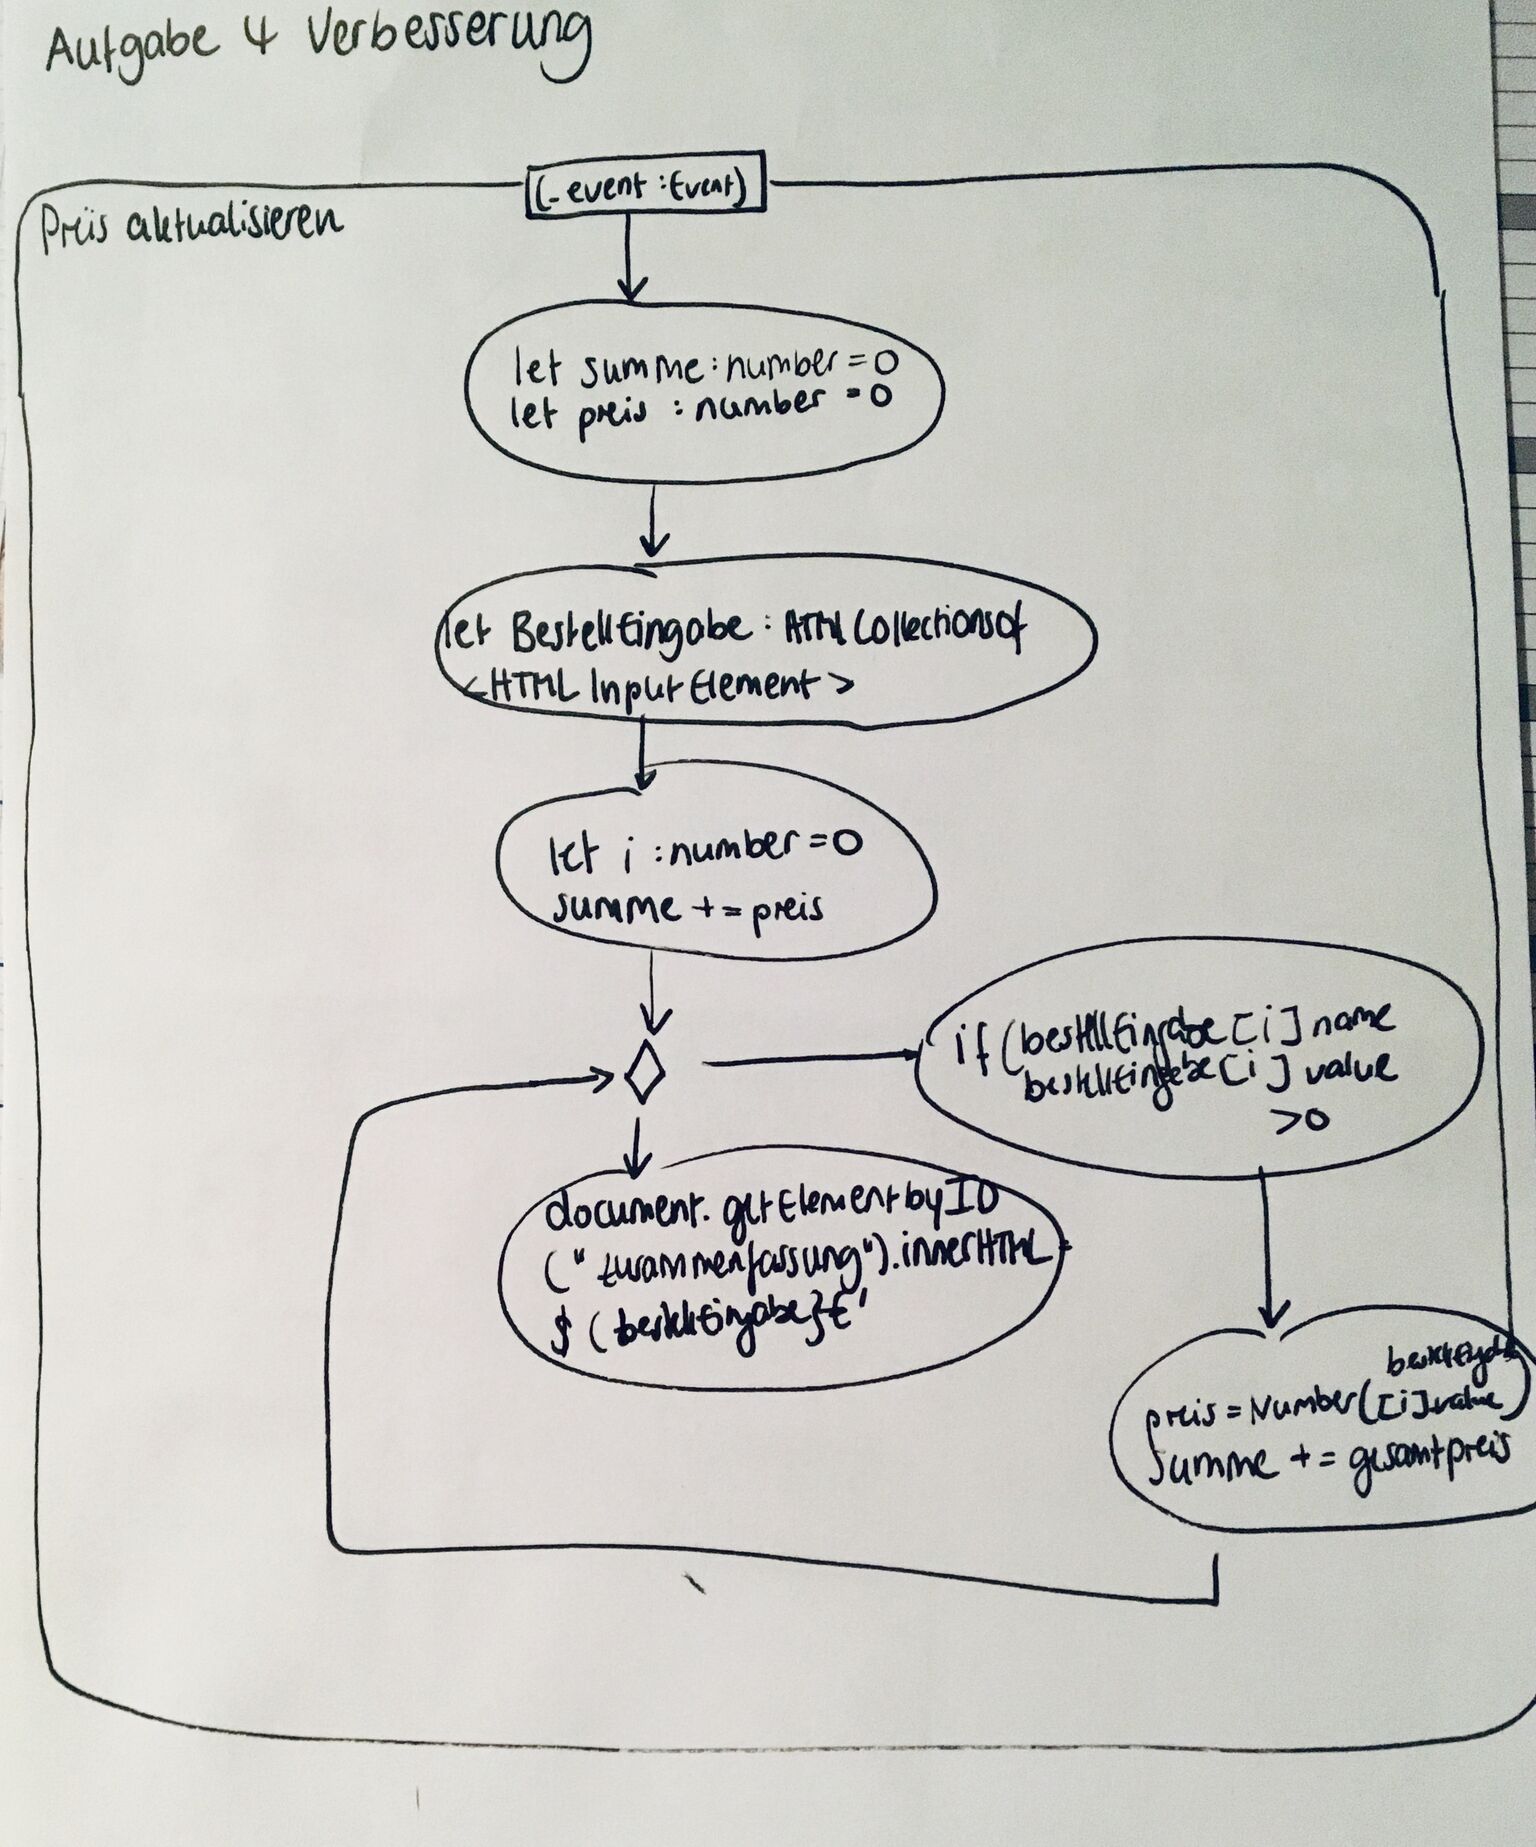 Aufgabe 4 Verbesserung
(_event : Event)
Preis aktualisieren
let summe : number = 0
let preis : number = 0
let BestellEingabe : HTMLCollectionsof
<HTMLInputElement>
let i : number = 0
summe += preis
if (bestellEingabe [i] name
bestellEingabe [i] value
>0
document.getElementbyID
("zusammenfassung").innerHTML =
$ (bestellEingabe}€'
bestellEingabe
preis = Number([i].value)
summe += gesamtpreis